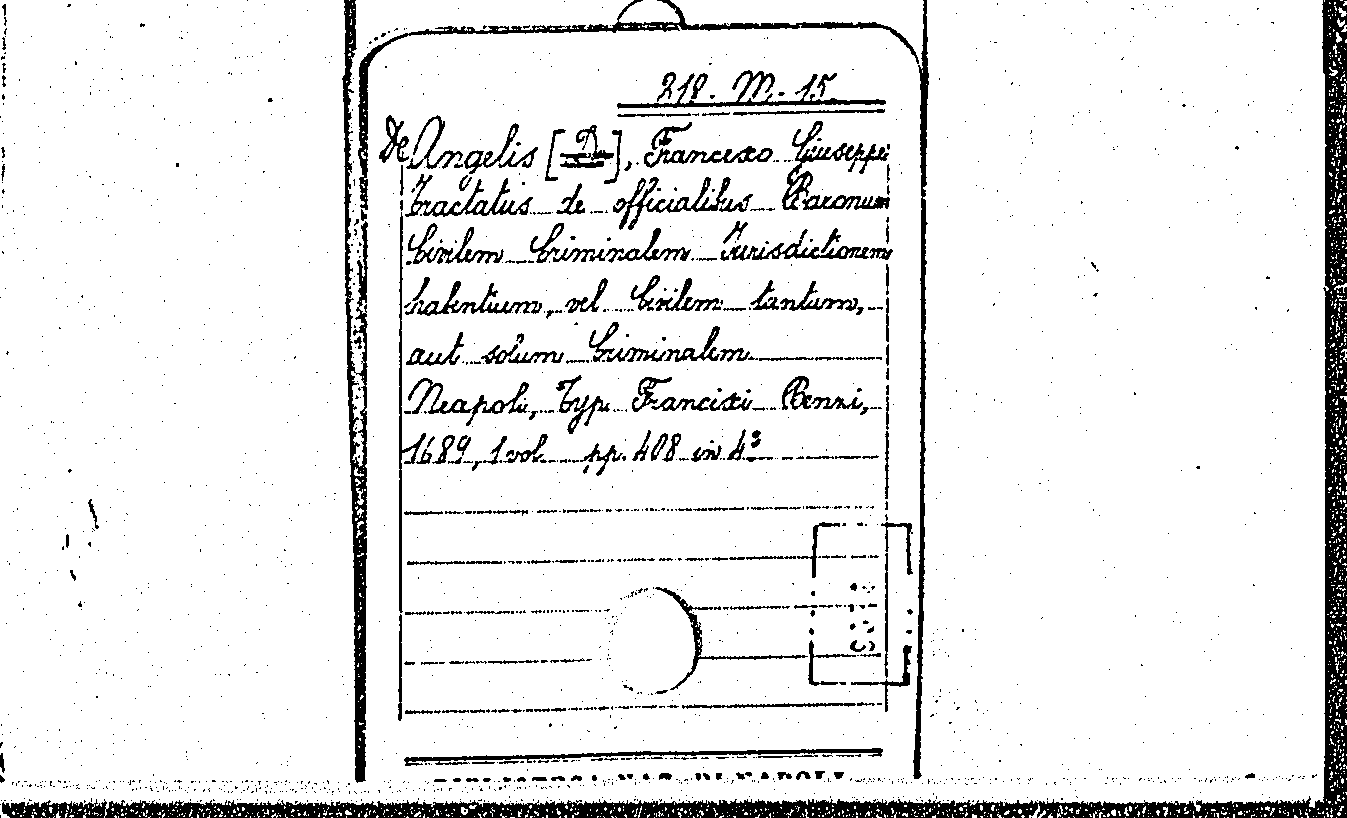 218. M. 15
De Angelis [D], Francesco Giuseppe
Tractatus de officialibus Baronum
Civilem Criminalem Jurisdictionem
habentium, vel Civilem tantum,
aut solum Criminalem
Neapoli, Typ. Francisci Benzi,
1689, 1 vol pp. 408 in 4º
BIBLIOTECA NAZ. DI NAPOLI